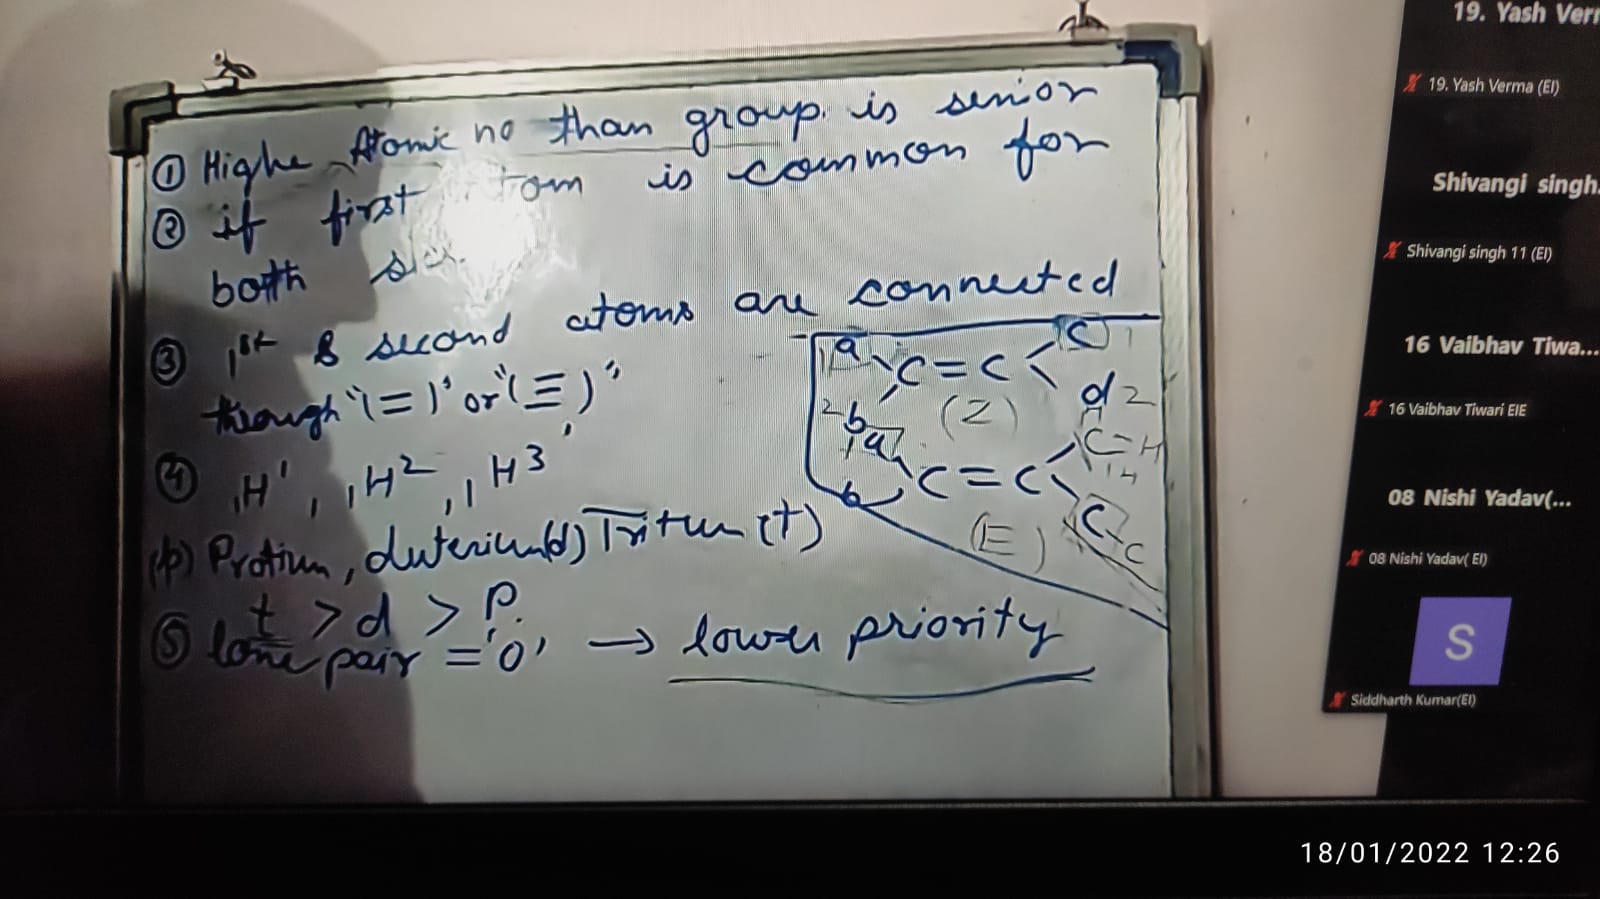 ① Highe Atomic no than group. is senior
② if first tom is common for
both
③ 1st & second atoms are connected
through "(=)" or "(≡)"
④ ₁H¹, ₁H², ₁H³
(p) Protium, duterium(d) Tritum (t)
t > d > p.
⑤ lone pair = '0' → lower priority
a C = C C 1
2 b (Z) d 2
a C = C C = H
H
1 H
b (E) C C
19. Yash Verr
19. Yash Verma (EI)
Shivangi singh.
Shivangi singh 11 (EI)
16 Vaibhav Tiwa...
16 Vaibhav Tiwari EIE
08 Nishi Yadav(...
08 Nishi Yadav( EI)
S
Siddharth Kumar(EI)
18/01/2022 12:26